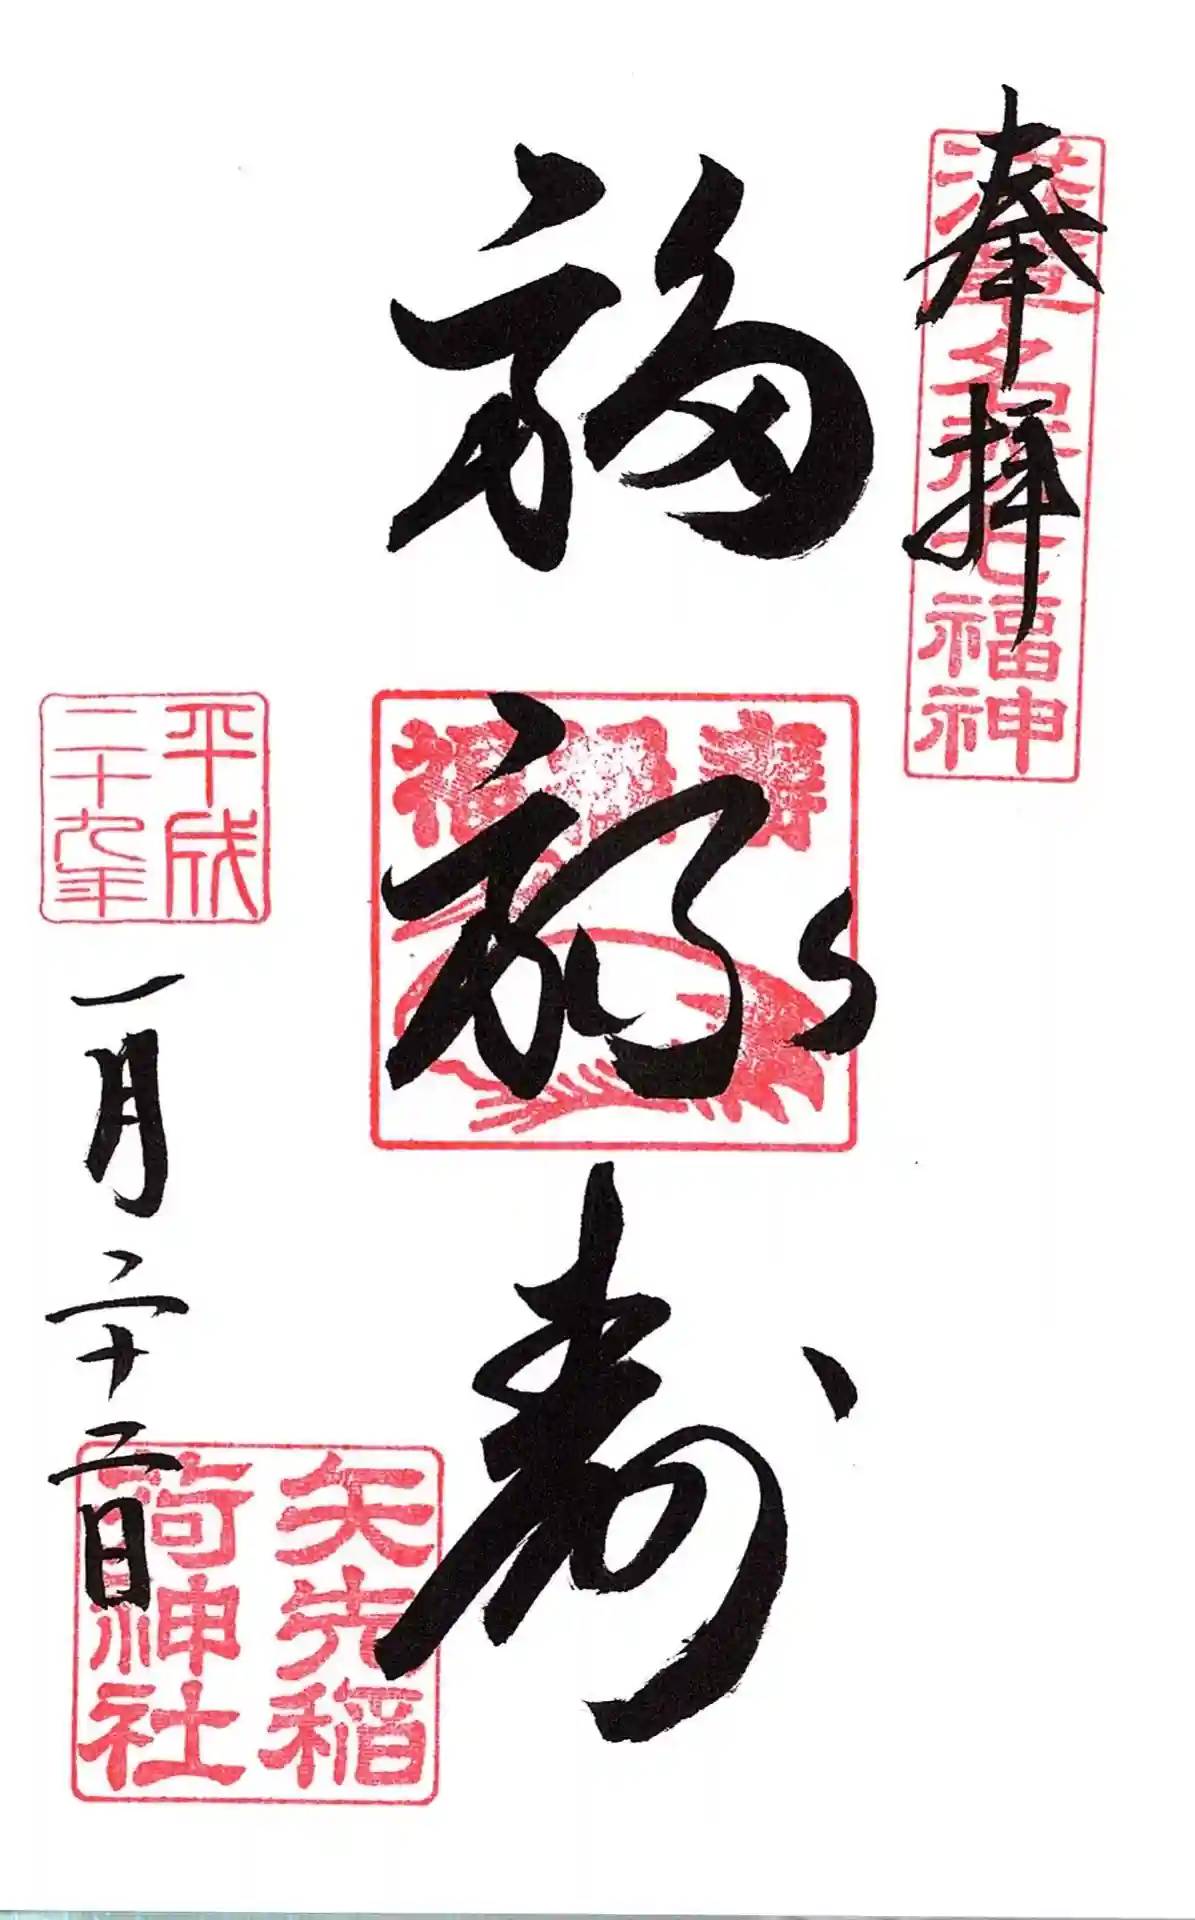 奉拝
浅草名所七福神
福禄寿
福禄寿
平成
二十九年
一月二十二日
矢先稲
荷神社